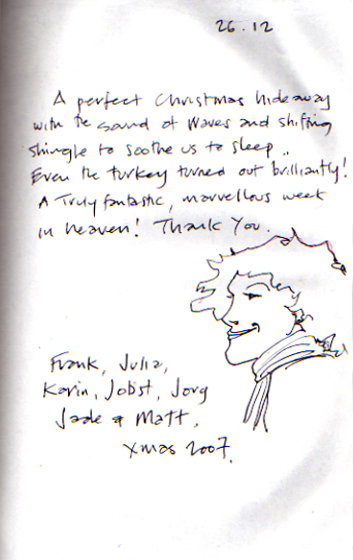 26.12
A perfect Christmas hideaway
with the sound of waves and shifting
shingle to soothe us to sleep ..
Even the turkey turned out brilliantly!
A Truly fantastic, marvellous week
in heaven! Thank You.
Frank, Julia,
Karin, Jobst, Jorg
Jade & Matt,
Xmas 2007.